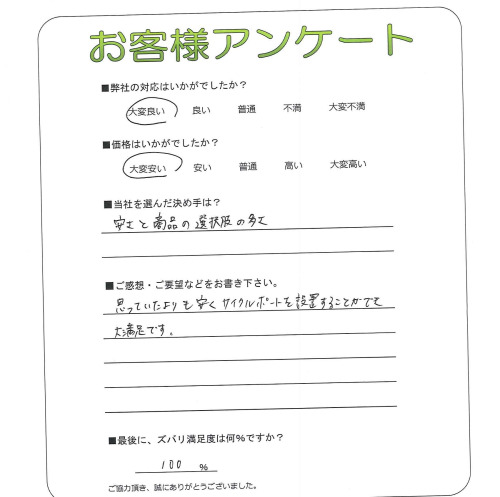 お客様アンケート
■弊社の対応はいかがでしたか？
大変良い 良い 普通 不満 大変不満
■価格はいかがでしたか？
大変安い 安い 普通 高い 大変高い
■当社を選んだ決め手は？
安さと商品の選択肢の多さ
■ご感想・ご要望などをお書き下さい。
思っていたよりも安くサイクルポートを設置することができ
大満足です。
■最後に、ズバリ満足度は何%ですか？
100 %
ご協力頂き、誠にありがとうございました。